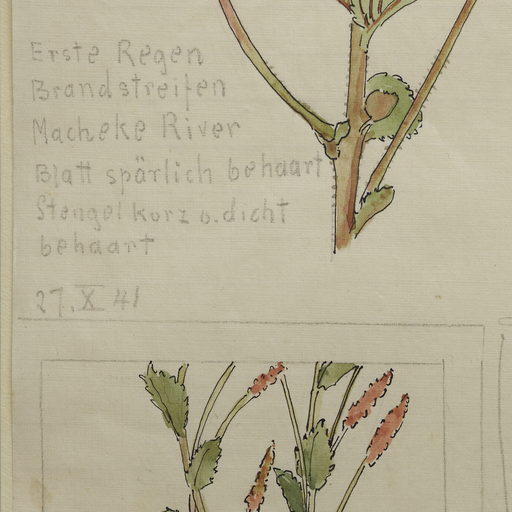 Erste Regen
Brandstreifen
Macheke River
Blatt spärlich behaart
Stengel kurz u. dicht
behaart
27. X 41